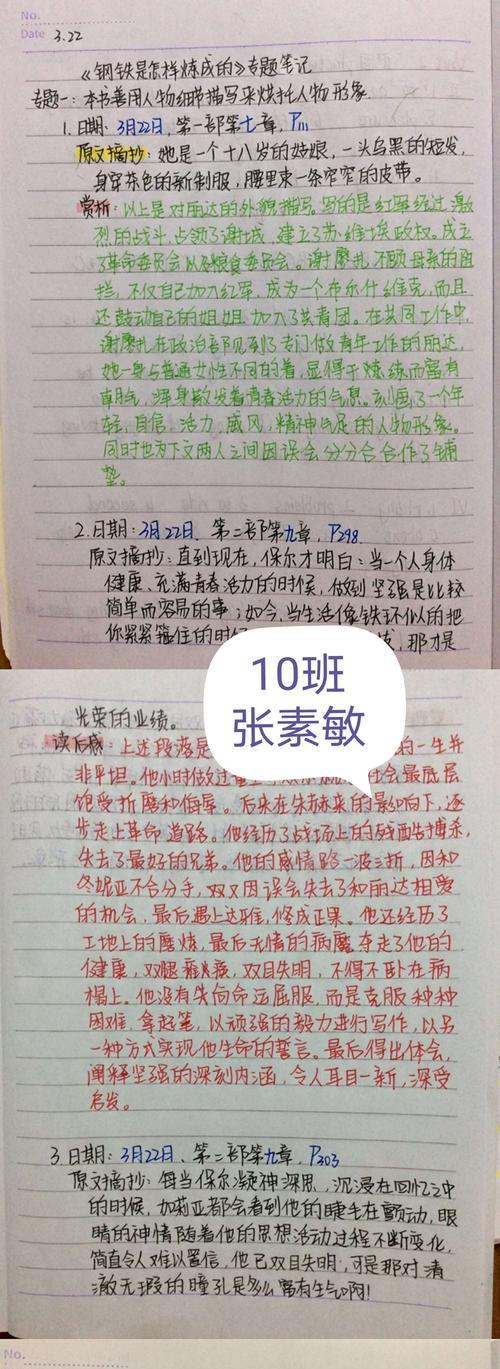 No.
Date 3.22
《钢铁是怎样炼成的》专题笔记
专题一：本书善用人物细节描写来烘托人物形象
1.日期：3月22日，第一部第七章，P111
原文摘抄：她是一个十八岁的姑娘，一头乌黑的短发，
身穿茶色的新制服，腰里束一条窄窄的皮带。
赏析：以上是对丽达的外貌描写。写的是红军经过激
烈的战斗，占领了谢城，建立了苏维埃政权。成立
了革命委员会以及粮食委员会。谢廖扎不顾母亲的阻
拦，不仅自己加入红军，成为一个布尔什维克，而且
还鼓动自己的姐姐加入了共青团。在共同工作中，
谢廖扎在政治部见到了专门做青年工作的丽达，
她一身与普通女性不同的着，显得干练而富有
朝气，浑身散发着青春活力的气息。刻画了一个年
轻，自信，活力，威风，精神气足的人物形象。
同时也为下文两人之间因误会分分合合作了铺
垫。
2.日期：3月22日，第二部第九章，P298
原文摘抄：直到现在，保尔才明白：当一个人身体
健康、充满青春活力的时候，做到坚强是比较
简单而容易的事；如今，当生活像铁环似的把
你紧紧箍住的时候 那才是
10班
张素敏
光荣的业绩。
读后感：上述段落是 的一生并
非平坦。他小时做过 社会最底层
饱受折磨和侮辱。后来在朱赫来的影响下，逐
步走上革命道路。他经历了战场上的残酷搏杀，
失去了最好的兄弟。他的感情路一波三折，因和
冬妮亚不合分手，双又因误会失去了和丽达相爱
的机会，最后遇上达雅，修成正果。他还经历了
工地上的磨炼，最后无情的病魔夺走了他的
健康，双腿瘫痪，双目失明，不得不卧在病
榻上。他没有失向命运屈服，而是克服种种
困难，拿起笔，以顽强的毅力进行写作，以另
一种方式实现他生命的誓言。最后得出体会，
阐释坚强的深刻内涵，令人耳目一新，深受
启发。
3.日期：3月22日、第二部第九章，P303
原文摘抄：每当保尔凝神深思，沉浸在回忆之中
的时候，加莉亚都会看到他的睫毛在颤动，眼
睛的神情随着他的思想活动过程不断变化，
简直令人难以置信，他已双目失明，可是那对清
澈无瑕的瞳孔是多么富有生气啊！
No.